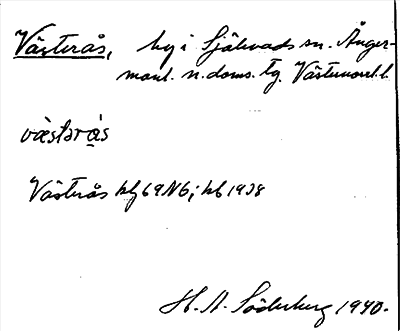 Västerås, by i Själevads sn. Ånger-
manl. n. doms. tg. Västernorrl. l.
vä̀stərås
Västerås kbl 69 N6; kb 1938
H. A. Söderberg 1940.